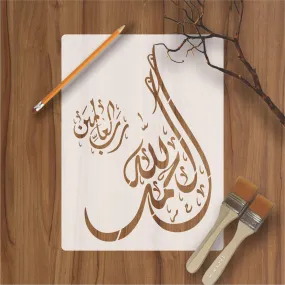 الحمد لله
رب العالمين